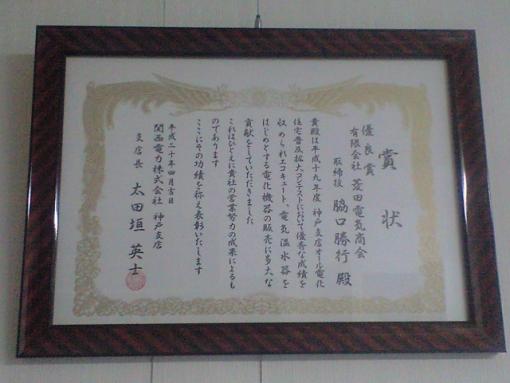 賞状
優良賞
有限会社 菱田電気商会
取締役 脇口勝行 殿
貴殿は平成十九年度 神戸支店オール電化
住宅普及拡大コンテストにおいて優秀な成績を
収められエコキュート、電気温水器を
はじめとする電化機器の販売に多大な
貢献をしていただきました
これはひとえに貴社の営業努力の成果によるも
のであります
ここにその功績を称え表彰いたします
平成二十年四月吉日
関西電力株式会社 神戸支店
支店長 太田垣 英士